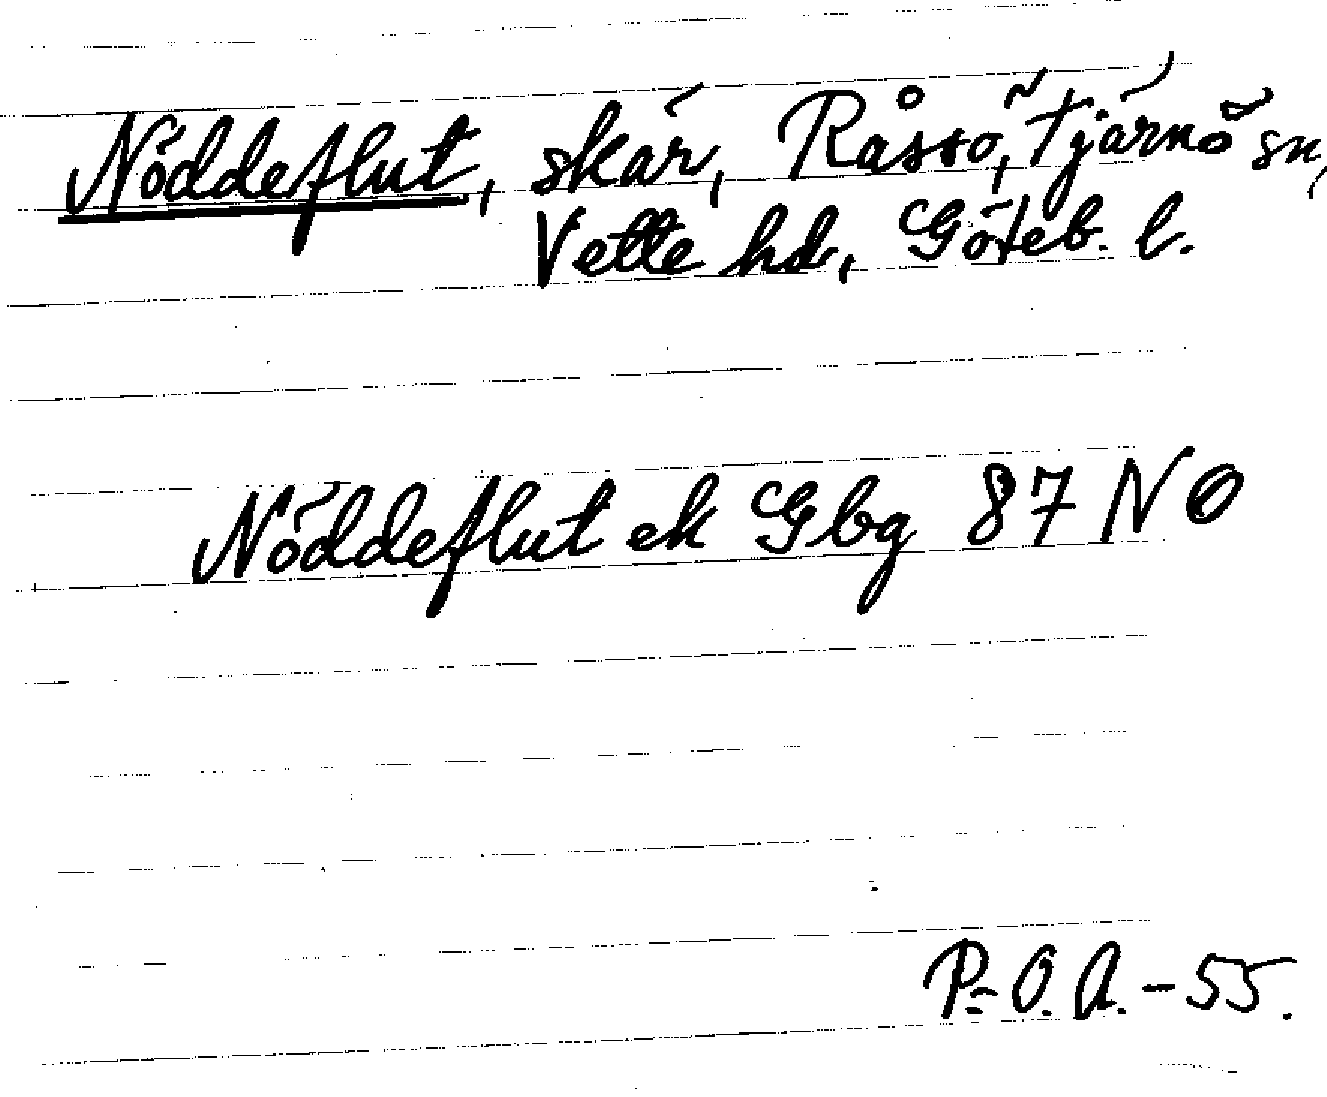 Nöddeflut, skär, Råssö, Tjärnö sn,
Vette hd, Göteb. l.
Nöddeflut ek Gbg 87 NO
P.-O. A. - 55.